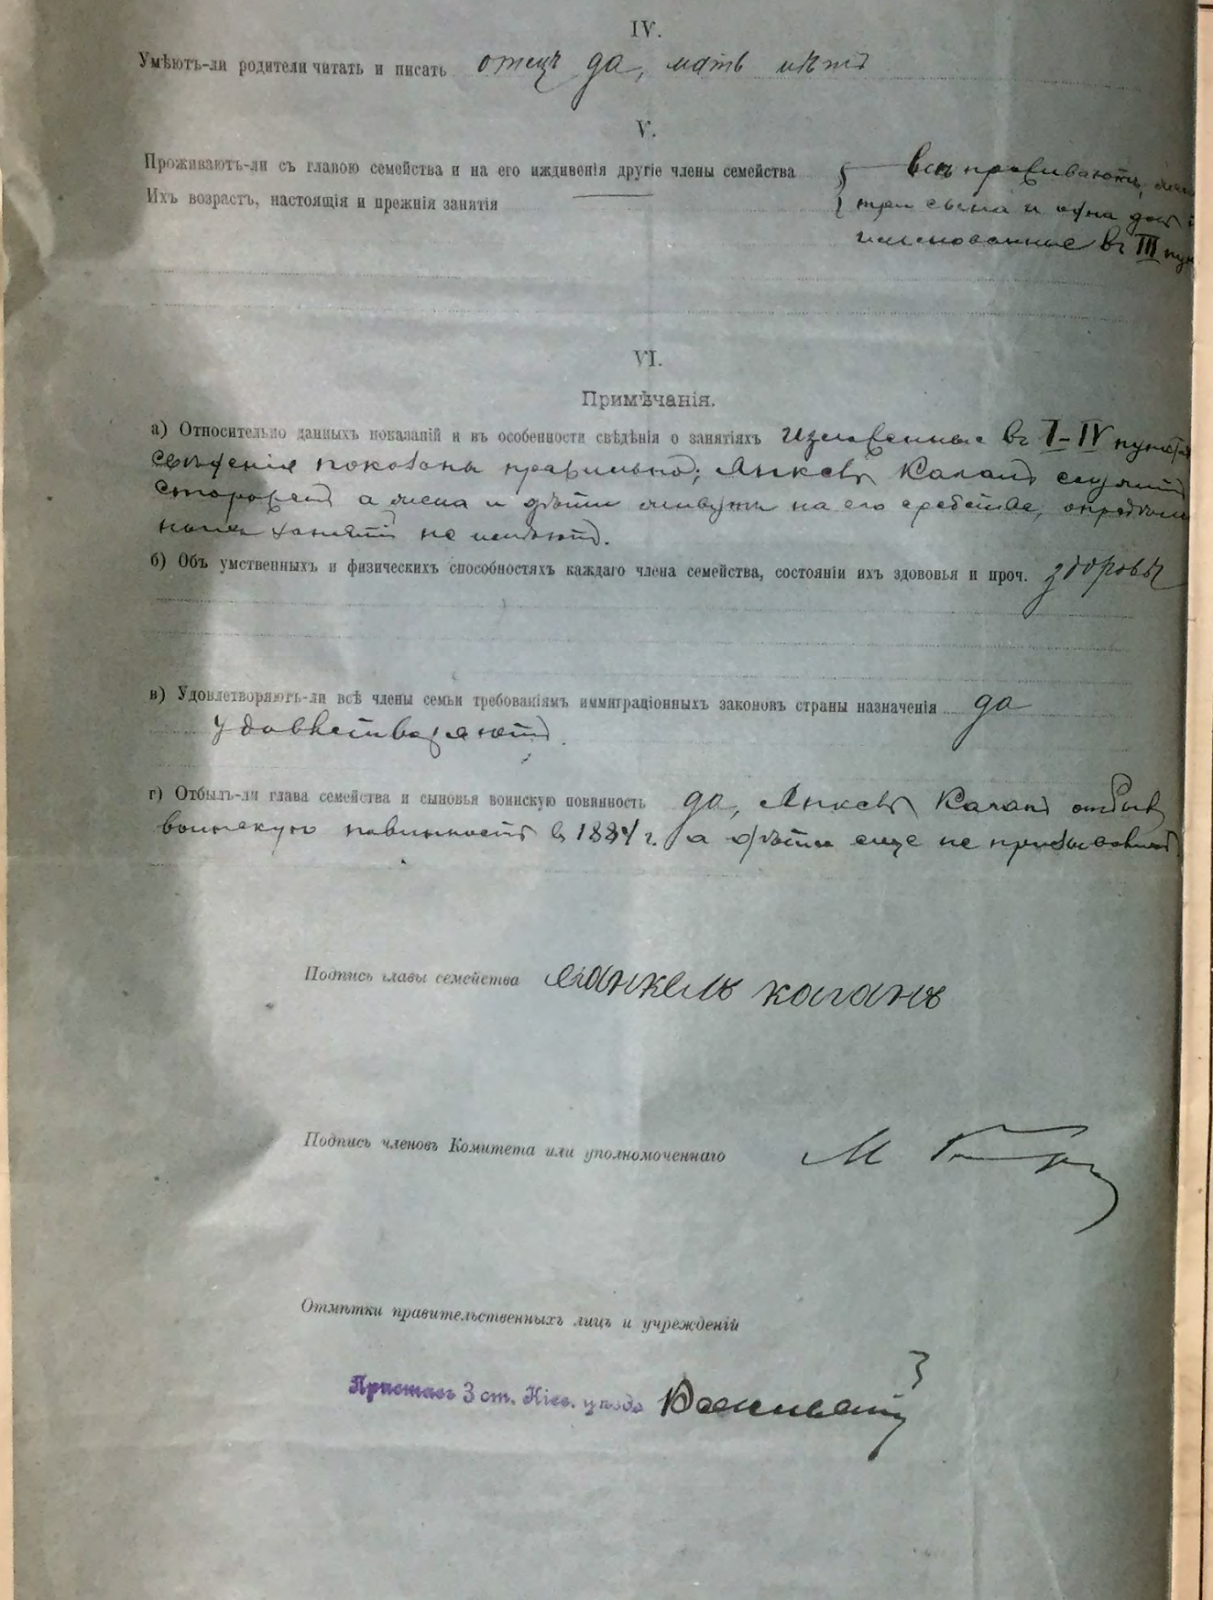 IV.
Умѣютъ-ли родители читать и писать отецъ да, мать нѣтъ
V.
Проживаютъ-ли съ главою семейства и на его иждивенія другіе члены семейства всѣ проживаютъ,
Ихъ возрастъ, настоящія и прежнія занятія три сына и одна доч
именованные въ III пун
VI.
Примѣчанія.
а) Относительно данныхъ показаній и въ особенности свѣдѣнія о занятіяхъ Изложенные въ I-IV пунктах
свѣдѣнія показаны правильно; Янкель Каганъ служитъ
сторожемъ а жена и дѣти живутъ на его средства,
занятій не имѣютъ.
б) Объ умственныхъ и физическихъ способностяхъ каждаго члена семейства, состояніи ихъ здововья и проч. здоровы
в) Удовлетворяютъ-ли всѣ члены семьи требованіямъ иммиграціонныхъ законовъ страны назначенія да
удовлетворяютъ.
г) Отбылъ-ли глава семейства и сыновья воинскую повинность да, Янкель Каганъ отбылъ
воинскую повинность въ 1884 г. а дѣти еще не призывались
Подпись главы семейства Янкель каганъ
Подпись членовъ Комитета или уполномоченнаго М
Отмѣтки правительственныхъ лицъ и учрежденій
Приставъ 3 ст. Кіев. уѣзда